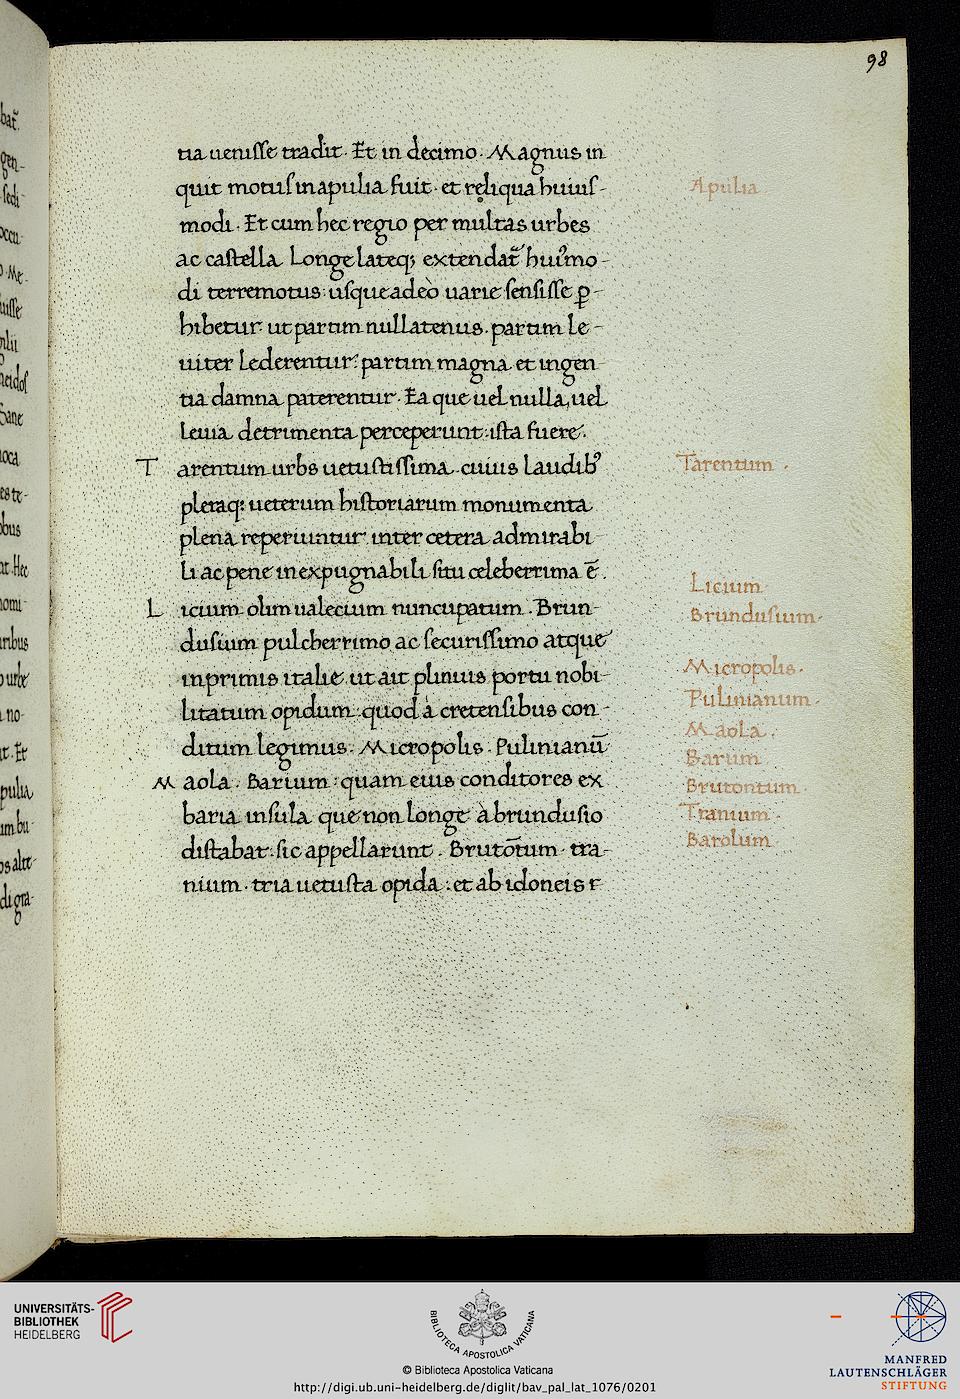 98
tia uenisse tradit. Et in decimo. Magnus in
quit motus in apulia fuit. et reliqua huius-
modi. Et cum hec regio per multas urbes
ac castella longe lateq; extendat̃ huiꝰmo-
di terremotus: usqueadeò uarie sensisse ꝑ-
hibetur: ut partim nullatenus. partim le-
uiter lederentur: partim magna et ingen-
tia damna paterentur. Ea que uel nulla, uel
leuia detrimenta perceperunt: ista fuere.
Tarentum urbs uetustissima. cuius laudibꝰ
pleraq; ueterum historiarum monumenta
plena reperiuntur. inter cetera admirabi-
li ac pene inexpugnabili situ celeberrima ē.
Licium olim ualecium nuncupatum. Brun-
dusium pulcherrimo ac securissimo atque
inprimis italie ut ait plinius portu nobi-
litatum opidum: quod à cretensibus con-
ditum legimus. Micropolis. Pulinianū
Maola. Barium: quam eius conditores ex
baria insula que non longe à brundusio
distabat: sic appellarunt. Brutōtum. tra-
nium. tria uetusta opida: et ab idoneis r
Apulia
Tarentum.
Licium
Brundusium.
Micropolis.
Pulinianum.
Maola.
Barum
Brutontum.
Tranium.
Barolum
bat̃.
gen-
sedi
occu-
Me-
uisse
neidos
Sane
ioca
es te-
obus
at. Hec
nomi-
iribus
urbe
no-
it. Et
pulia
um bu-
os alte-
di gra-
UNIVERSITÄTS-
BIBLIOTHEK
HEIDELBERG
BIBLIOTECA APOSTOLICA VATICANA
© Biblioteca Apostolica Vaticana
http://digi.ub.uni-heidelberg.de/diglit/bav_pal_lat_1076/0201
MANFRED
LAUTENSCHLÄGER
STIFTUNG